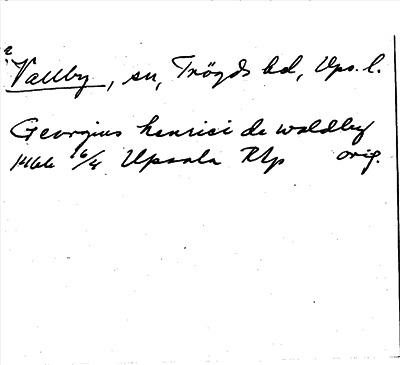 Vallby, sn, Trögds hd, Ups. l.
Georgius henrici de waldby
1466 6/4 Upsala Rkp orig.